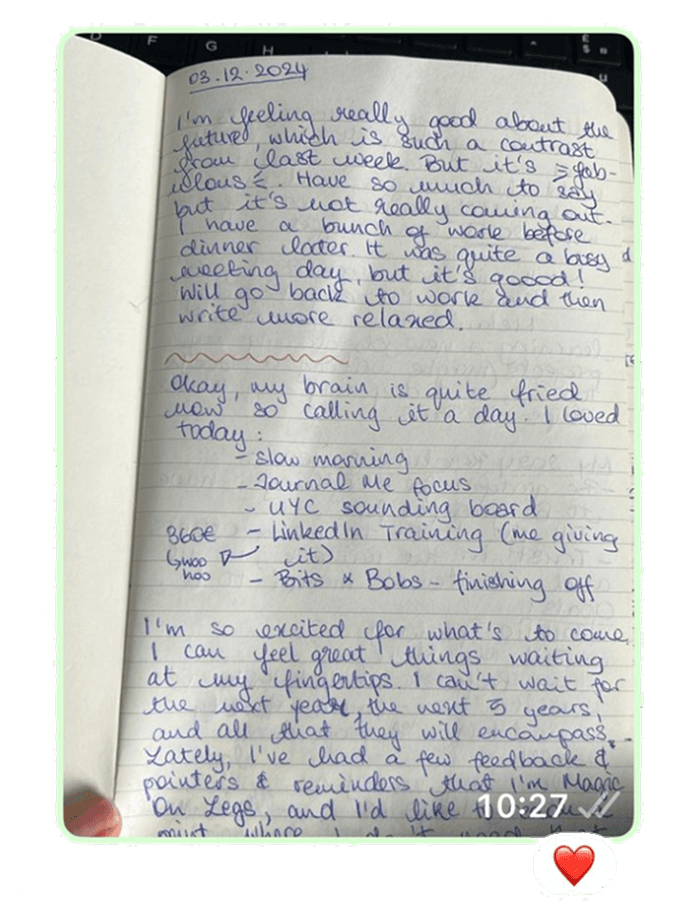 F G H
03.12.2024
I'm feeling really good about the
future, which is such a contrast
from last week. But it's fab-
ulous. Have so much to say
but it's not really coming out.
I have a bunch of work before
dinner later. It was quite a busy
meeting day, but it's goood!
Will go back to work and then
write more relaxed.
Okay, my brain is quite fried
now so calling it a day. I loved
today:
- slow morning
- Journal Me focus
- UYC sounding board
- LinkedIn Training (me giving
it)
360€
woo
hoo
- Bits & Bobs - finishing off
I'm so excited for what's to come.
I can feel great things waiting
at my fingertips. I can't wait for
the next year, the next 5 years,
and all that they will encompass.
Lately, I've had a few feedback &
pointers & reminders that I'm Magic
On Legs, and I'd like
10:27